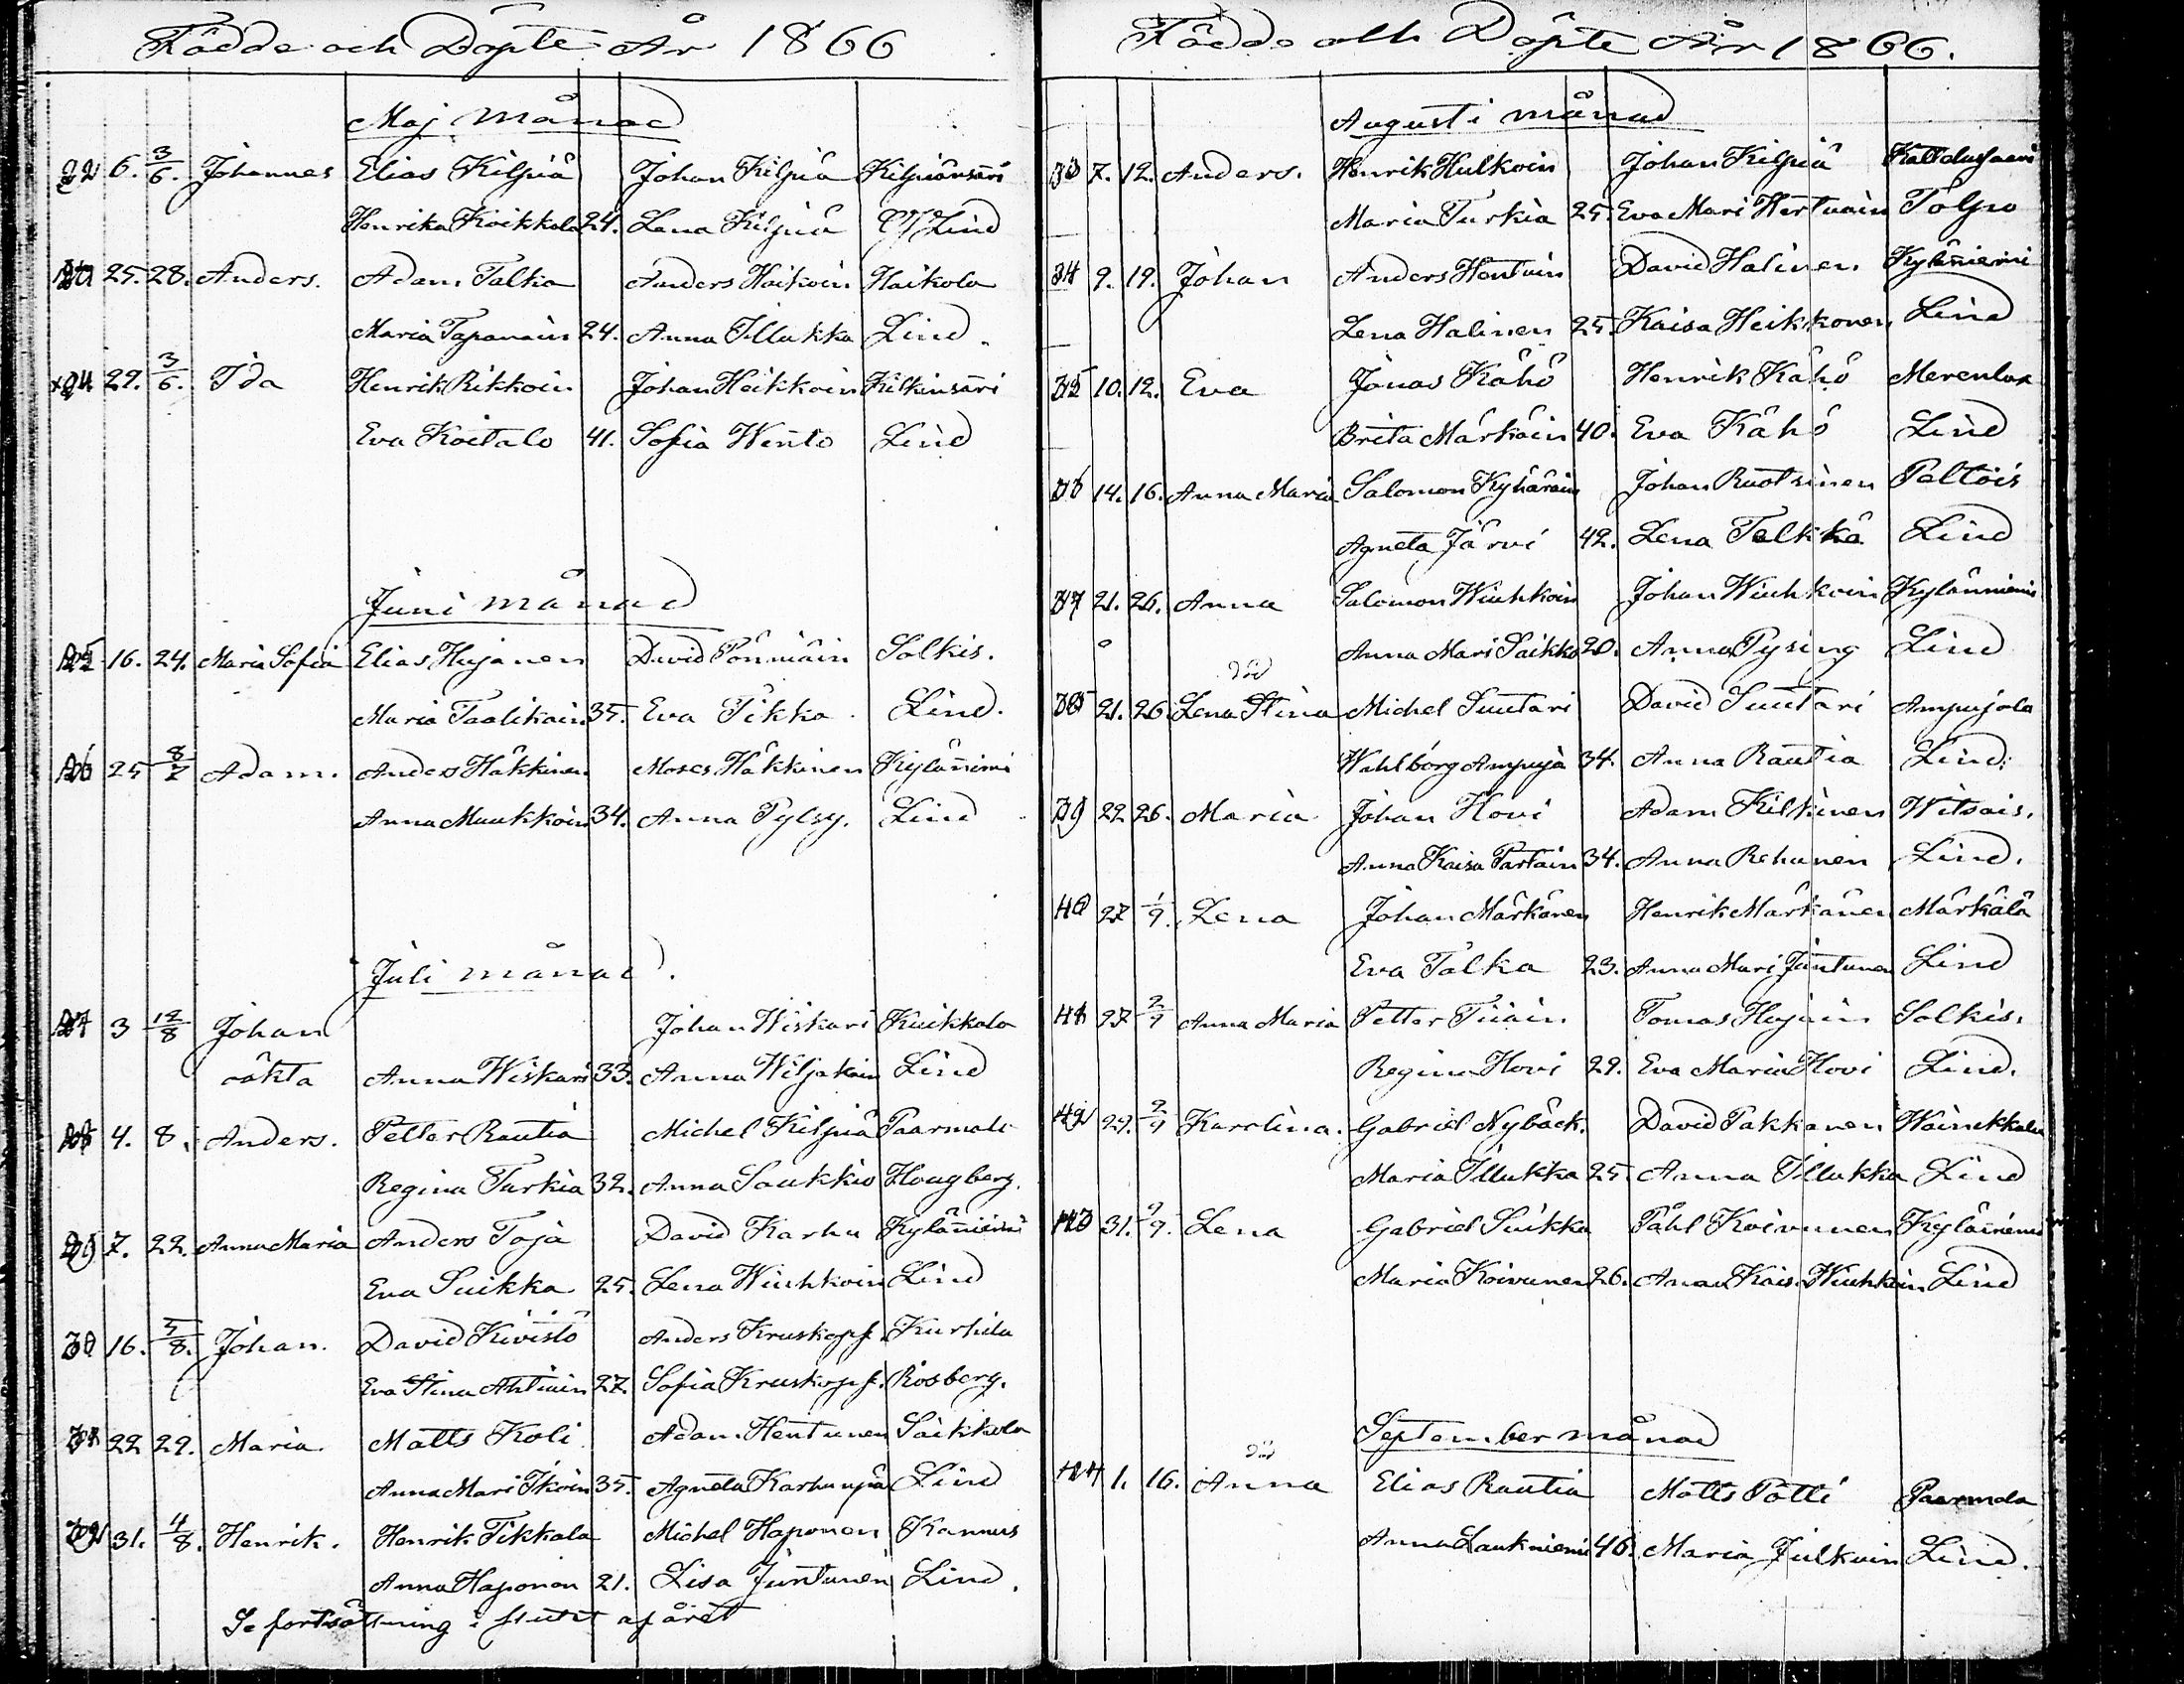 Födde och Döpte År 1866
Maj månad
22 6. 3/6. Johannes Elias Kilpiä Johan Kilpiä Kilpiänsaari
Henrika Koikkala 24. Lena Kilpiä Lind
25. 28. Anders. Adam Talka Anders Haikoin Haikola
Maria Tapanain 24. Anna Illukka Lind.
24 29. 3/6. Ida Henrik Rikkoin Johan Heikkoin Kilkinsari
Eva Koitalo 41. Sofia Wento Lind
Juni månad
25 16. 24. Maria Sofia Elias Hujanen David Pönniäin Solkis.
Maria Taalikain 35. Eva Tikka Lind.
26 25 8/7 Adam. Anders Häkkinen Moses Häkkinen Kylänimi
Anna Muukkoin 34. Anna Pylsy. Lind
Juli månad.
27 3 12/8 Johan Johan Wiskari Kuikkala
oäkta Anna Wiskari 33. Anna Wiljakain Lind
28 4. 8. Anders. Petter Rautia Michel Kilpiä Paarmala
Regina Turkia 32. Anna Saukkio Hougberg.
29 7. 22. Anna Maria Anders Toja David Karhu Kylänimi
Eva Suikka 25. Lena Wiuhkoin Lind
30 16. 5/8. Johan. David Kivistö Anders Kruskopf. Kurhila
Eva Stina Ahtiain 27. Sofia Kruskopf. Rosberg.
31 22 29. Maria. Matts Koli Adam Hentunen Säikkola
Anna Mari Ikoin 35. Agneta Karhunpä Lind
32 31. 4/8. Henrik. Henrik Tikkala Michel Haponen Kannus
Anna Haponen 21. Lisa Juntunen Lind.
Se fortsättning i slutet af året
Födde och Döpte År 1866.
Augusti månad
33 7. 12. Anders. Henrik Hulkoin Johan Kilpiä
Maria Turkia 25. Eva Mari Hertuain
34 9. 19. Johan Anders Hentuin David Halinen Kyläniemi
Lena Halinen 25. Kaisa Heikkonen Lind
35 10. 12. Eva Jonas Kähö Henrik Kähö Merenlax
Brita Märkäin 40. Eva Kähö Lind
36 14. 16. Anna Maria Salomon Kyhäräin Johan Ruotsinen Paltois
Agneta Järvi 42. Lena Talkka Lind
37 21. 26. Anna Salomon Wiuhkoin Johan Wiuhkoin Kylänniemi
Anna Mari Saikko 20. Anna Pysing Lind
död
38 21. 26 Lena Stina Michel Suutari David Suutari Ampujala
Wahlborg Ampuja 34. Anna Rautia Lind.
39 22 26. Maria Johan Hovi Adam Kilkinen Witsais.
Anna Kaisa Partain 34. Anna Rehunen Lind.
40 27 1/9. Lena Johan Märkänen Henrik Märkänen Märkälä
Eva Talka 23. Anna Mari Juntunen Lind
41 27 2/9 Anna Maria Petter Tiiain Tomas Hujain Solkis.
Regina Hovi 29. Eva Maria Hovi Lind.
42 29. 2/9 Karolina. Gabriel Nybäck. David Pakkanen Wäinikkala
Maria Illukka 25. Anna Illukka Lind
43 31. 9/9. Lena Gabriel Suikka Påhl Koivunen Kyläniemi
Maria Koivunen 26. Anna Kais. Wiuhkoin Lind
September månad
död
44 1. 16. Anna Elias Rautia Matts Pätti Paarmala
Anna Laukniemi 46. Maria Julkuin Lind.